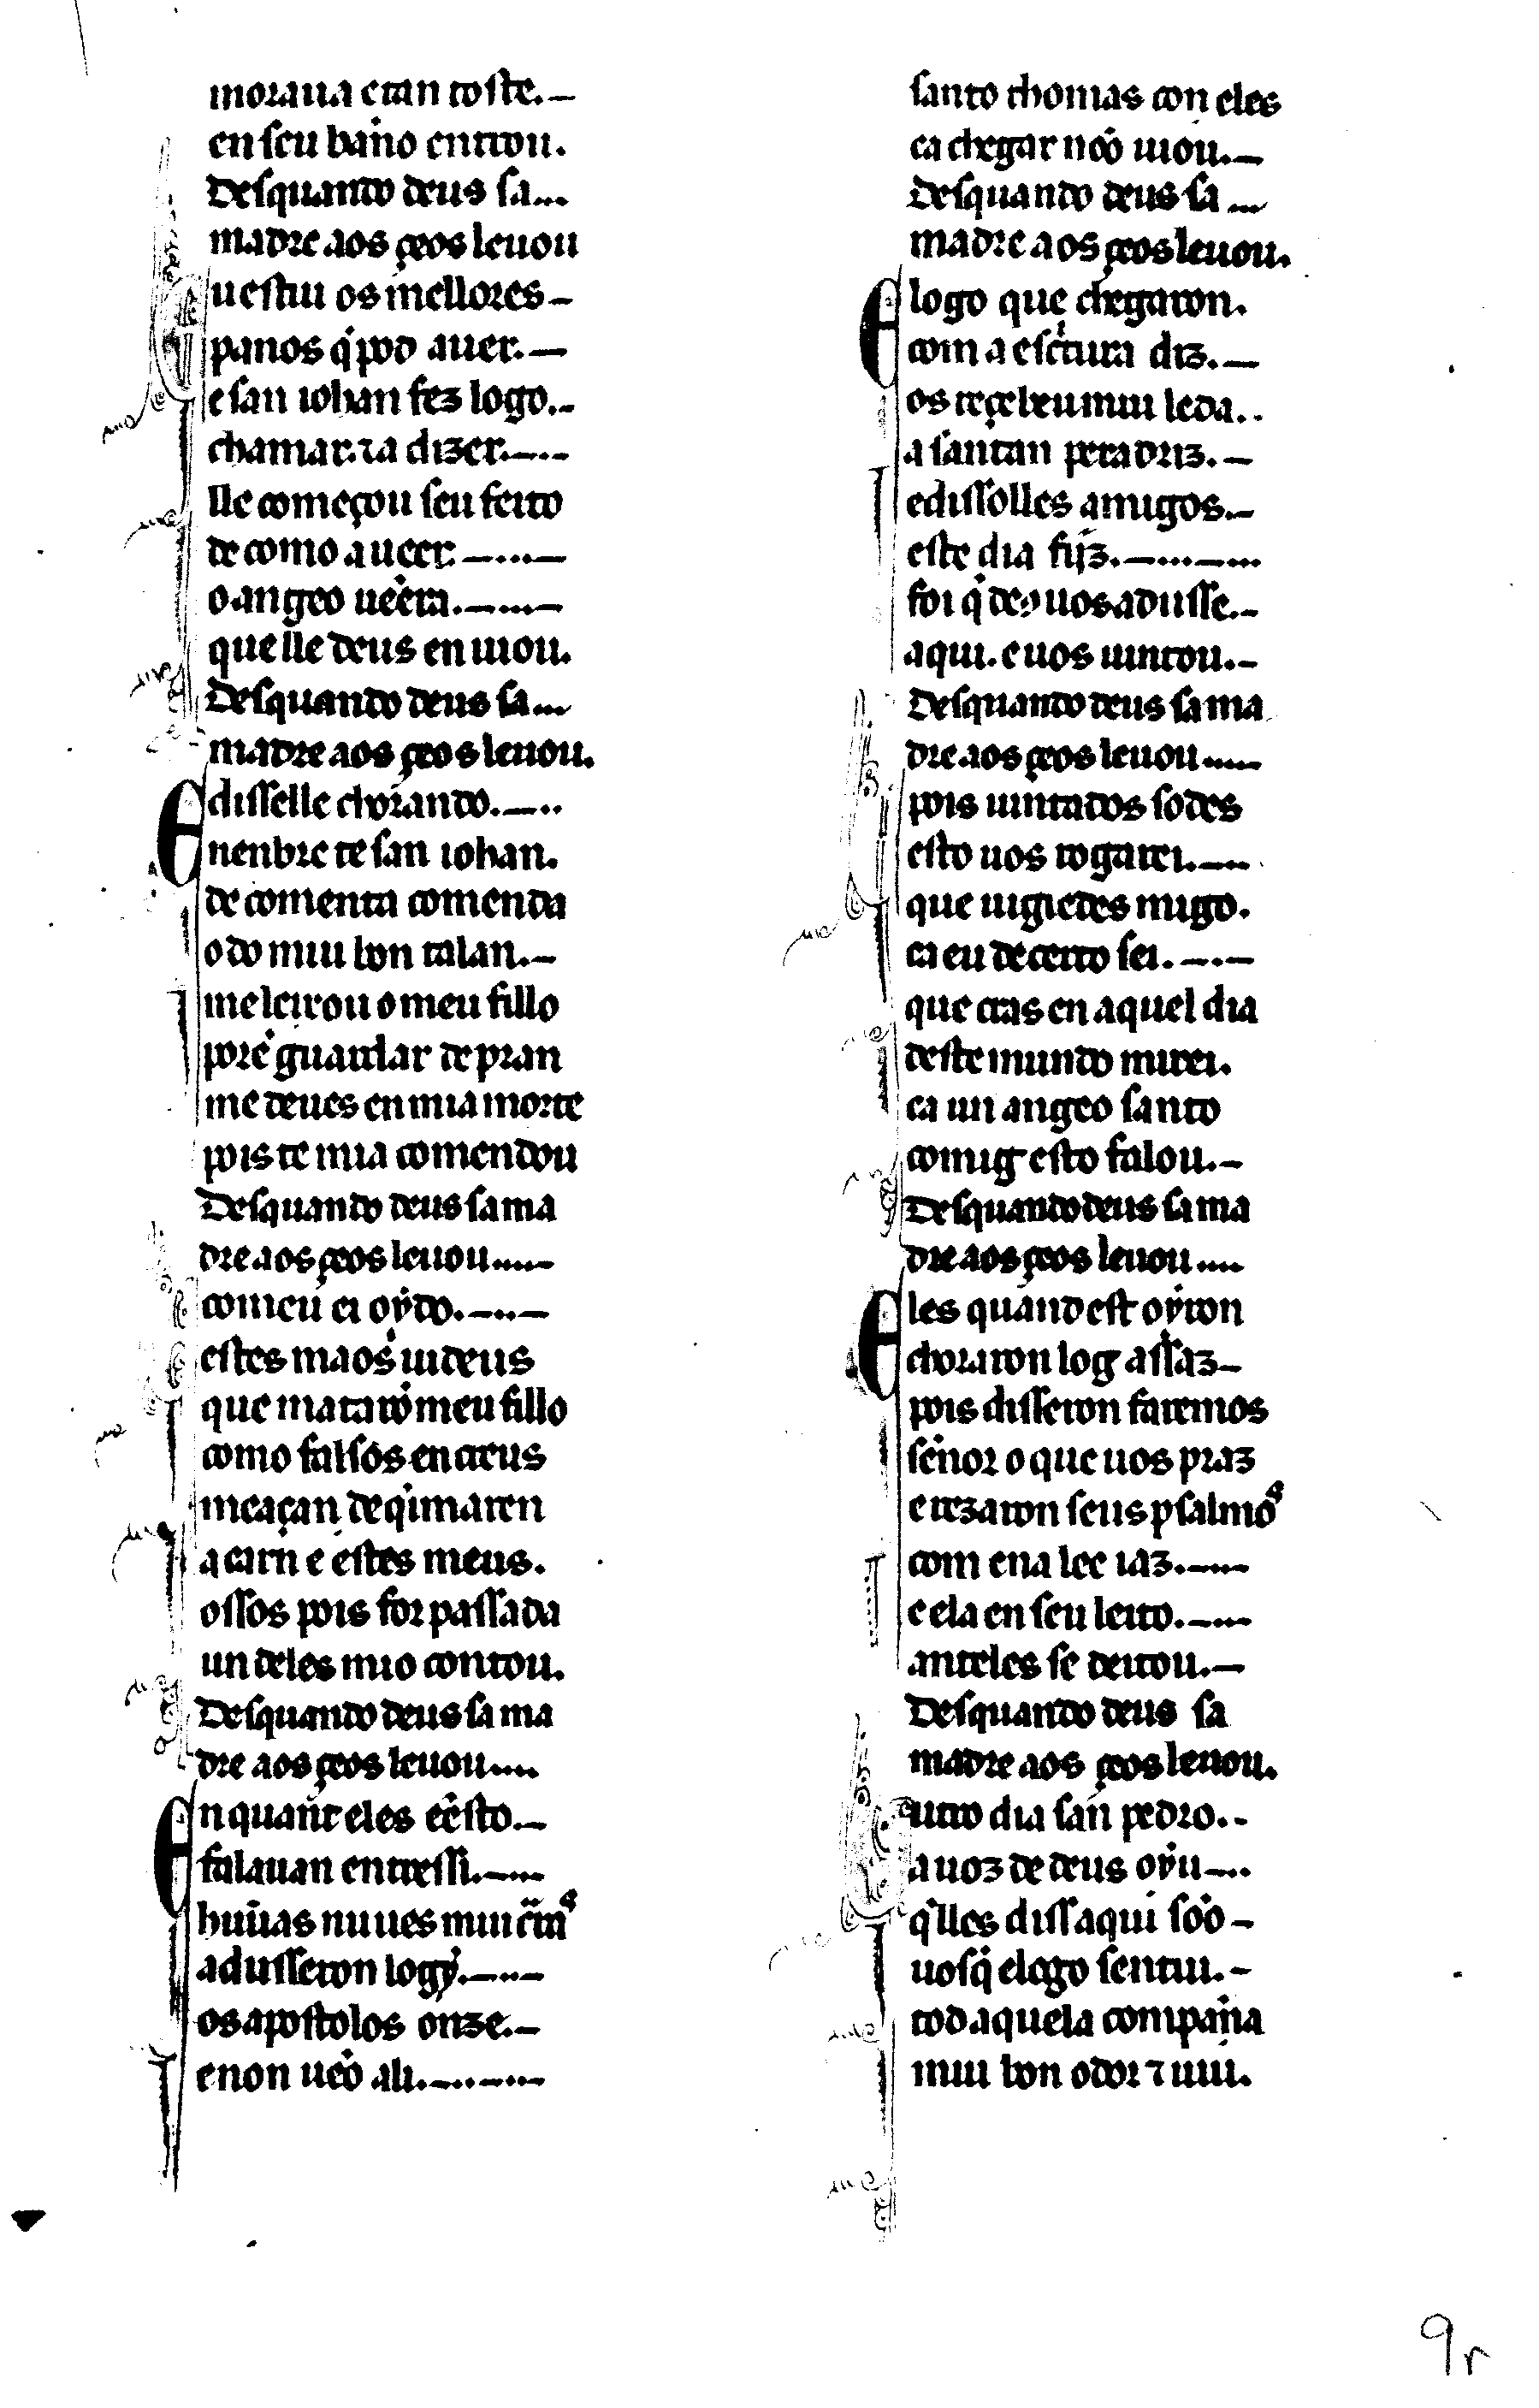 moraua e tan toste.
en seu bann̄o entrou.
Desquando deus sa
madre aos çeos leuou
E uestiu os mellores
panos q̇ pod auer.
e san iohan fez logo.
chamar. ⁊ a dizer.
lle começou seu feito
de como a ueer.
o angeo uẽera.
que lle deus enuiou.
Desquando deus sa
madre aos çeos leuou.
E disselle chorando.
nenbre te san iohan.
de comenta comenda
o do mui bon talan.
me leixou o meu fillo
porẽ guardar de pran
me deues en mia morte
pois te mia comendou
Desquando deus sa ma
dre aos çeos leuou
com eu ei oỹdo.
estes maos iudeus
que mataro᷉ meu fillo
como falsos encreus
meaçan de q̇imaren
a carn e estes meus.
ossos pois for passada
un deles mio contou.
Desquando deus sa ma
dre aos çeos leuou
En quant eles esto.
falauan entressi.
hũas nuues mui crãs
adusseron logẏ.
os apostolos onze.
e non uẽo ali.
santo thomas con eles
ca chegar nõ uiou.
Desquando deus sa
madre aos çeos leuou.
E logo que chegaron.
com a escritura diz.
os reçebeu mui leda.
a santa enperadriz.
e dissolles amigos.
este dia fijz.
foi q̇ deꝰ uos adusse.
aqui. e uos iuntou.
Desquando deus sa ma
dre aos çeos leuou
pois iuntados sodes
esto uos rogarei.
que uigiedes migo.
ca eu de certo sei.
que cras en aquel dia
deste mundo mirei.
ca un angeo santo
comig esto falou.
Desquando deus sa ma
dre aos çeos leuou
Eles quand est oỹron
choraron log assaz
pois disseron faremos
sen̄or o que uos praz
e rezaron seus psalmos
com ena lee iaz.
e ela en seu leito.
anteles se deitou.
Desquando deus sa
madre aos çeos leuou.
Outro dia san pedro.
a uoz de deus oỹu
q̇lles diss aqui sõo
uosq̇ e logo sentiu.
tod aquela compan̄a
mui bon odor ⁊ uiu.
9r